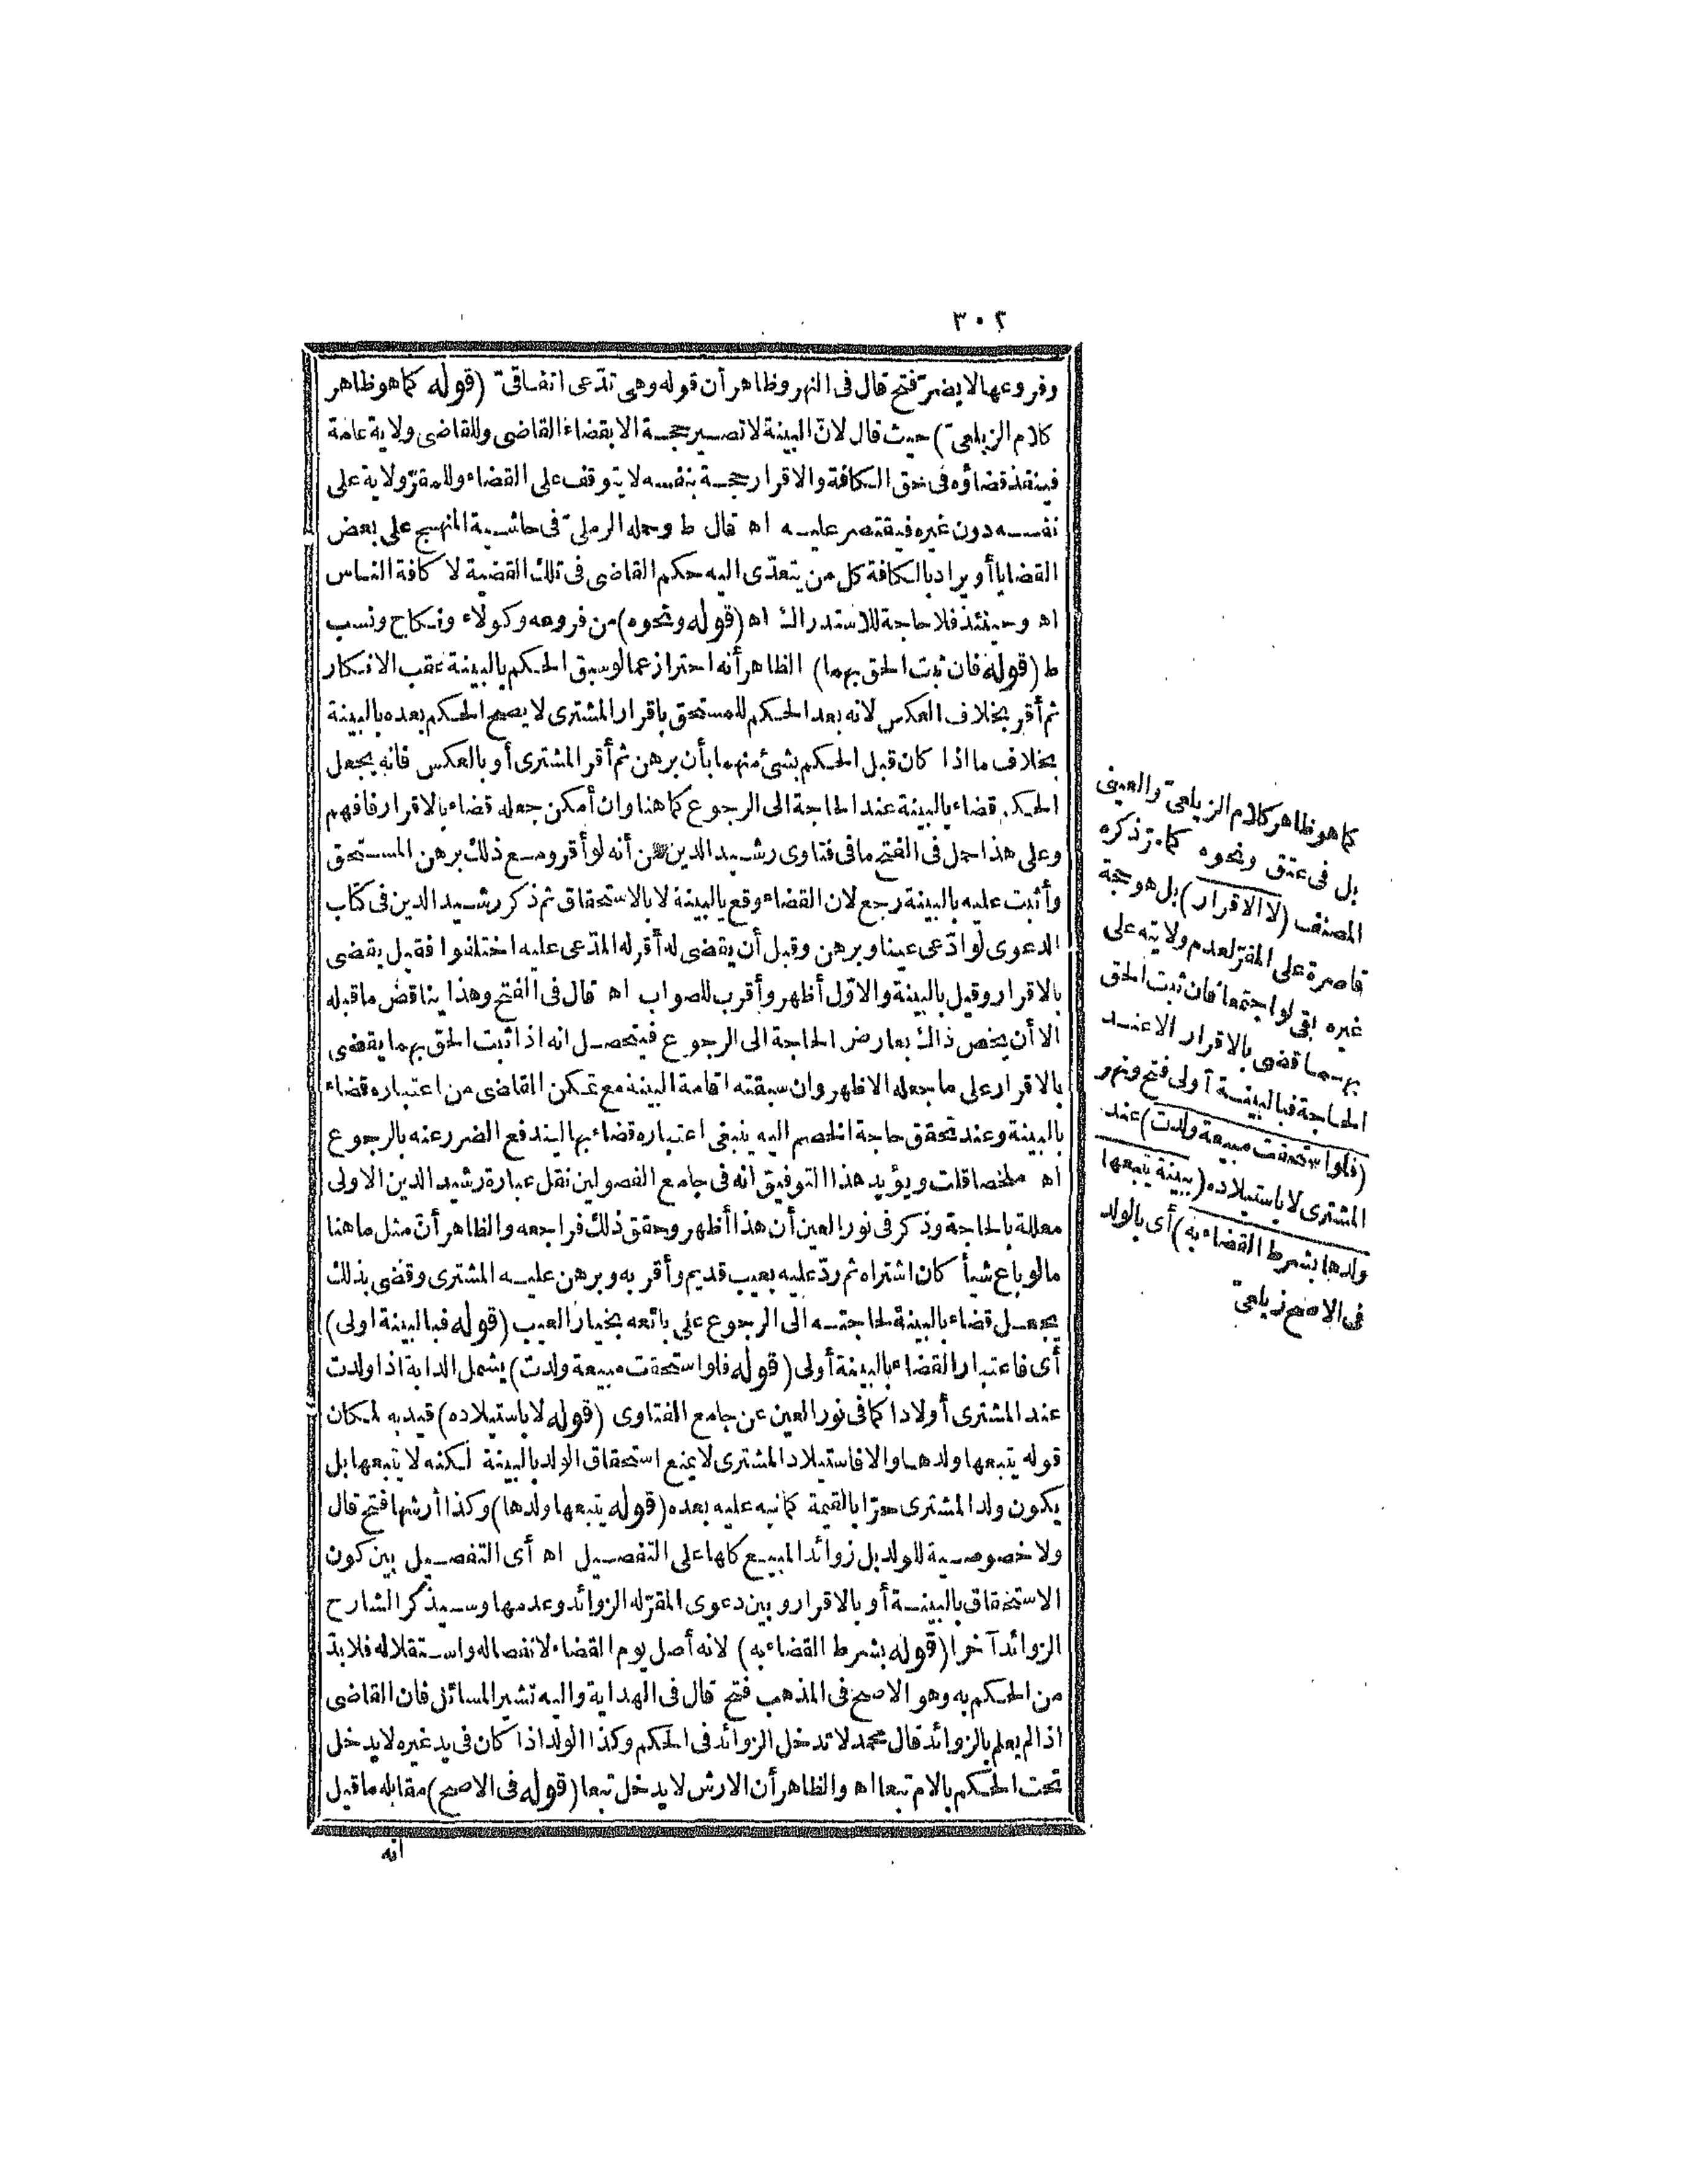 ٣٠٢
وفروعها لا يضرّ فتح قال فى النهر وظاهر أن قوله وهى تدّعى اتفاقىّ (قوله كما هو ظاهر
كلام الزيلعىّ) حيث قال لانّ البينة لا تصير حجة الا بقضاء القاضى وللقاضى ولاية عامة
فينفذ قضاؤه فى حق الكافة والاقرار حجة بنفسه لا يتوقف على القضاء وللمقرّ ولاية على
نفسه دون غيره فيقتصر عليه اه قال ط وحمله الرملىّ فى حاشية المنهج على بعض
القضايا أو يراد بالكافة كل من يتعدّى اليه حكم القاضى فى تلك القضية لا كافة الناس
اه وحينئذ فلا حاجة للاستدراك اه (قوله ونحوه) من فروعه وكولاء ونكاح ونسب
ط (قوله فان ثبت الحق بهما) الظاهر أنه احتراز عما لو سبق الحكم بالبينة عقب الانكار
ثم أقر بخلاف العكس لانه بعد الحكم للمستحق باقرار المشترى لا يصح الحكم بعده بالبينة
بخلاف ما اذا كان قبل الحكم بشئ منهما بأن برهن ثم أقر المشترى أو بالعكس فانه يجعل
الحكم قضاء بالبينة عند الحاجة الى الرجوع كما هنا وان أمكن جعله قضاء بالاقرار فافهم
وعلى هذا حمل فى الفتح ما فى فتاوى رشيد الدين من أنه لو أقر ومع ذلك برهن المستحق
وأثبت عليه بالبينة رجع لان القضاء وقع بالبينة لا بالاستحقاق ثم ذكر رشيد الدين فى كتاب
الدعوى لو ادّعى عينا وبرهن وقبل أن يقضى له أقر له المدّعى عليه اختلفوا فقيل يقضى
بالاقرار وقيل بالبينة والاوّل أظهر وأقرب للصواب اه قال فى الفتح وهذا يناقض ما قبله
الا أن يخص ذاك بعارض الحاجة الى الرجوع فيتحصل انه اذا ثبت الحق بهما يقضى
بالاقرار على ما جعله الاظهر وان سبقته اقامة البينة مع تمكن القاضى من اعتباره قضاء
بالبينة وعند تحقق حاجة الخصم اليه ينبغى اعتباره قضاء بها ليندفع الضرر عنه بالرجوع
اه ملخصا قلت ويؤيد هذا التوفيق انه فى جامع الفصولين نقل عبارة رشيد الدين الاولى
معللة بالحاجة وذكر فى نور العين أن هذا أظهر وحقق ذلك فراجعه والظاهر أنّ مثل ما هنا
ما لو باع شيأ كان اشتراه ثم ردّ عليه بعيب قديم وأقر به وبرهن عليه المشترى وقضى بذلك
يجعل قضاء بالبينة لحاجته الى الرجوع على بائعه بخيار العيب (قوله فبالبينة اولى)
أى فاعتبار القضاء بالبينة أولى (قوله فلو استحقت مبيعة ولدت) يشمل الدابة اذا ولدت
عند المشترى أولادا كما فى نور العين عن جامع الفتاوى (قوله لا باستيلاده) قيد به لمكان
قوله يتبعها ولدها والا فاستيلاد المشترى لا يمنع استحقاق الولد بالبينة لكنه لا يتبعها بل
يكون ولد المشترى حرّا بالقيمة كما نبه عليه بعده (قوله يتبعها ولدها) وكذا أرشها فتح قال
ولا خصوصية للولد بل زوائد المبيع كلها على التفصيل اه أى التفصيل بين كون
الاستحقاق بالبينة أو بالاقرار وبين دعوى المقرّ له الزوائد وعدمها وسيذكر الشارح
الزوائد آخرا (قوله بشرط القضاء به) لانه أصل يوم القضاء لانفصاله واستقلاله فلا بدّ
من الحكم به وهو الاصح فى المذهب فتح قال فى الهداية واليه تشير المسائل فان القاضى
اذا لم يعلم بالزوائد قال محمد لا تدخل الزوائد فى الحكم وكذا الولد اذا كان فى يد غيره لا يدخل
تحت الحكم بالام تبعا اه والظاهر أن الارش لا يدخل تبعا (قوله فى الاصح) مقابله ما قيل
انه
كما هو ظاهر كلام الزيلعىّ والعينى
بل فى عتق ونحوه كما مرّ ذكره
المصنف (لا الاقرار) بل هو حجة
قاصرة على المقرّ لعدم ولايته على
غيره بقى لو اجتمعا فان ثبت الحق
بهما قضى بالاقرار الا عند
الحاجة فبالبينة أولى فتح ونهر
(فلو استحقت مبيعة ولدت) عند
المشترى لا باستيلاده (ببينة يتبعها
ولدها بشرط القضاء به) أى بالولد
فى الاصح زيلعىّ